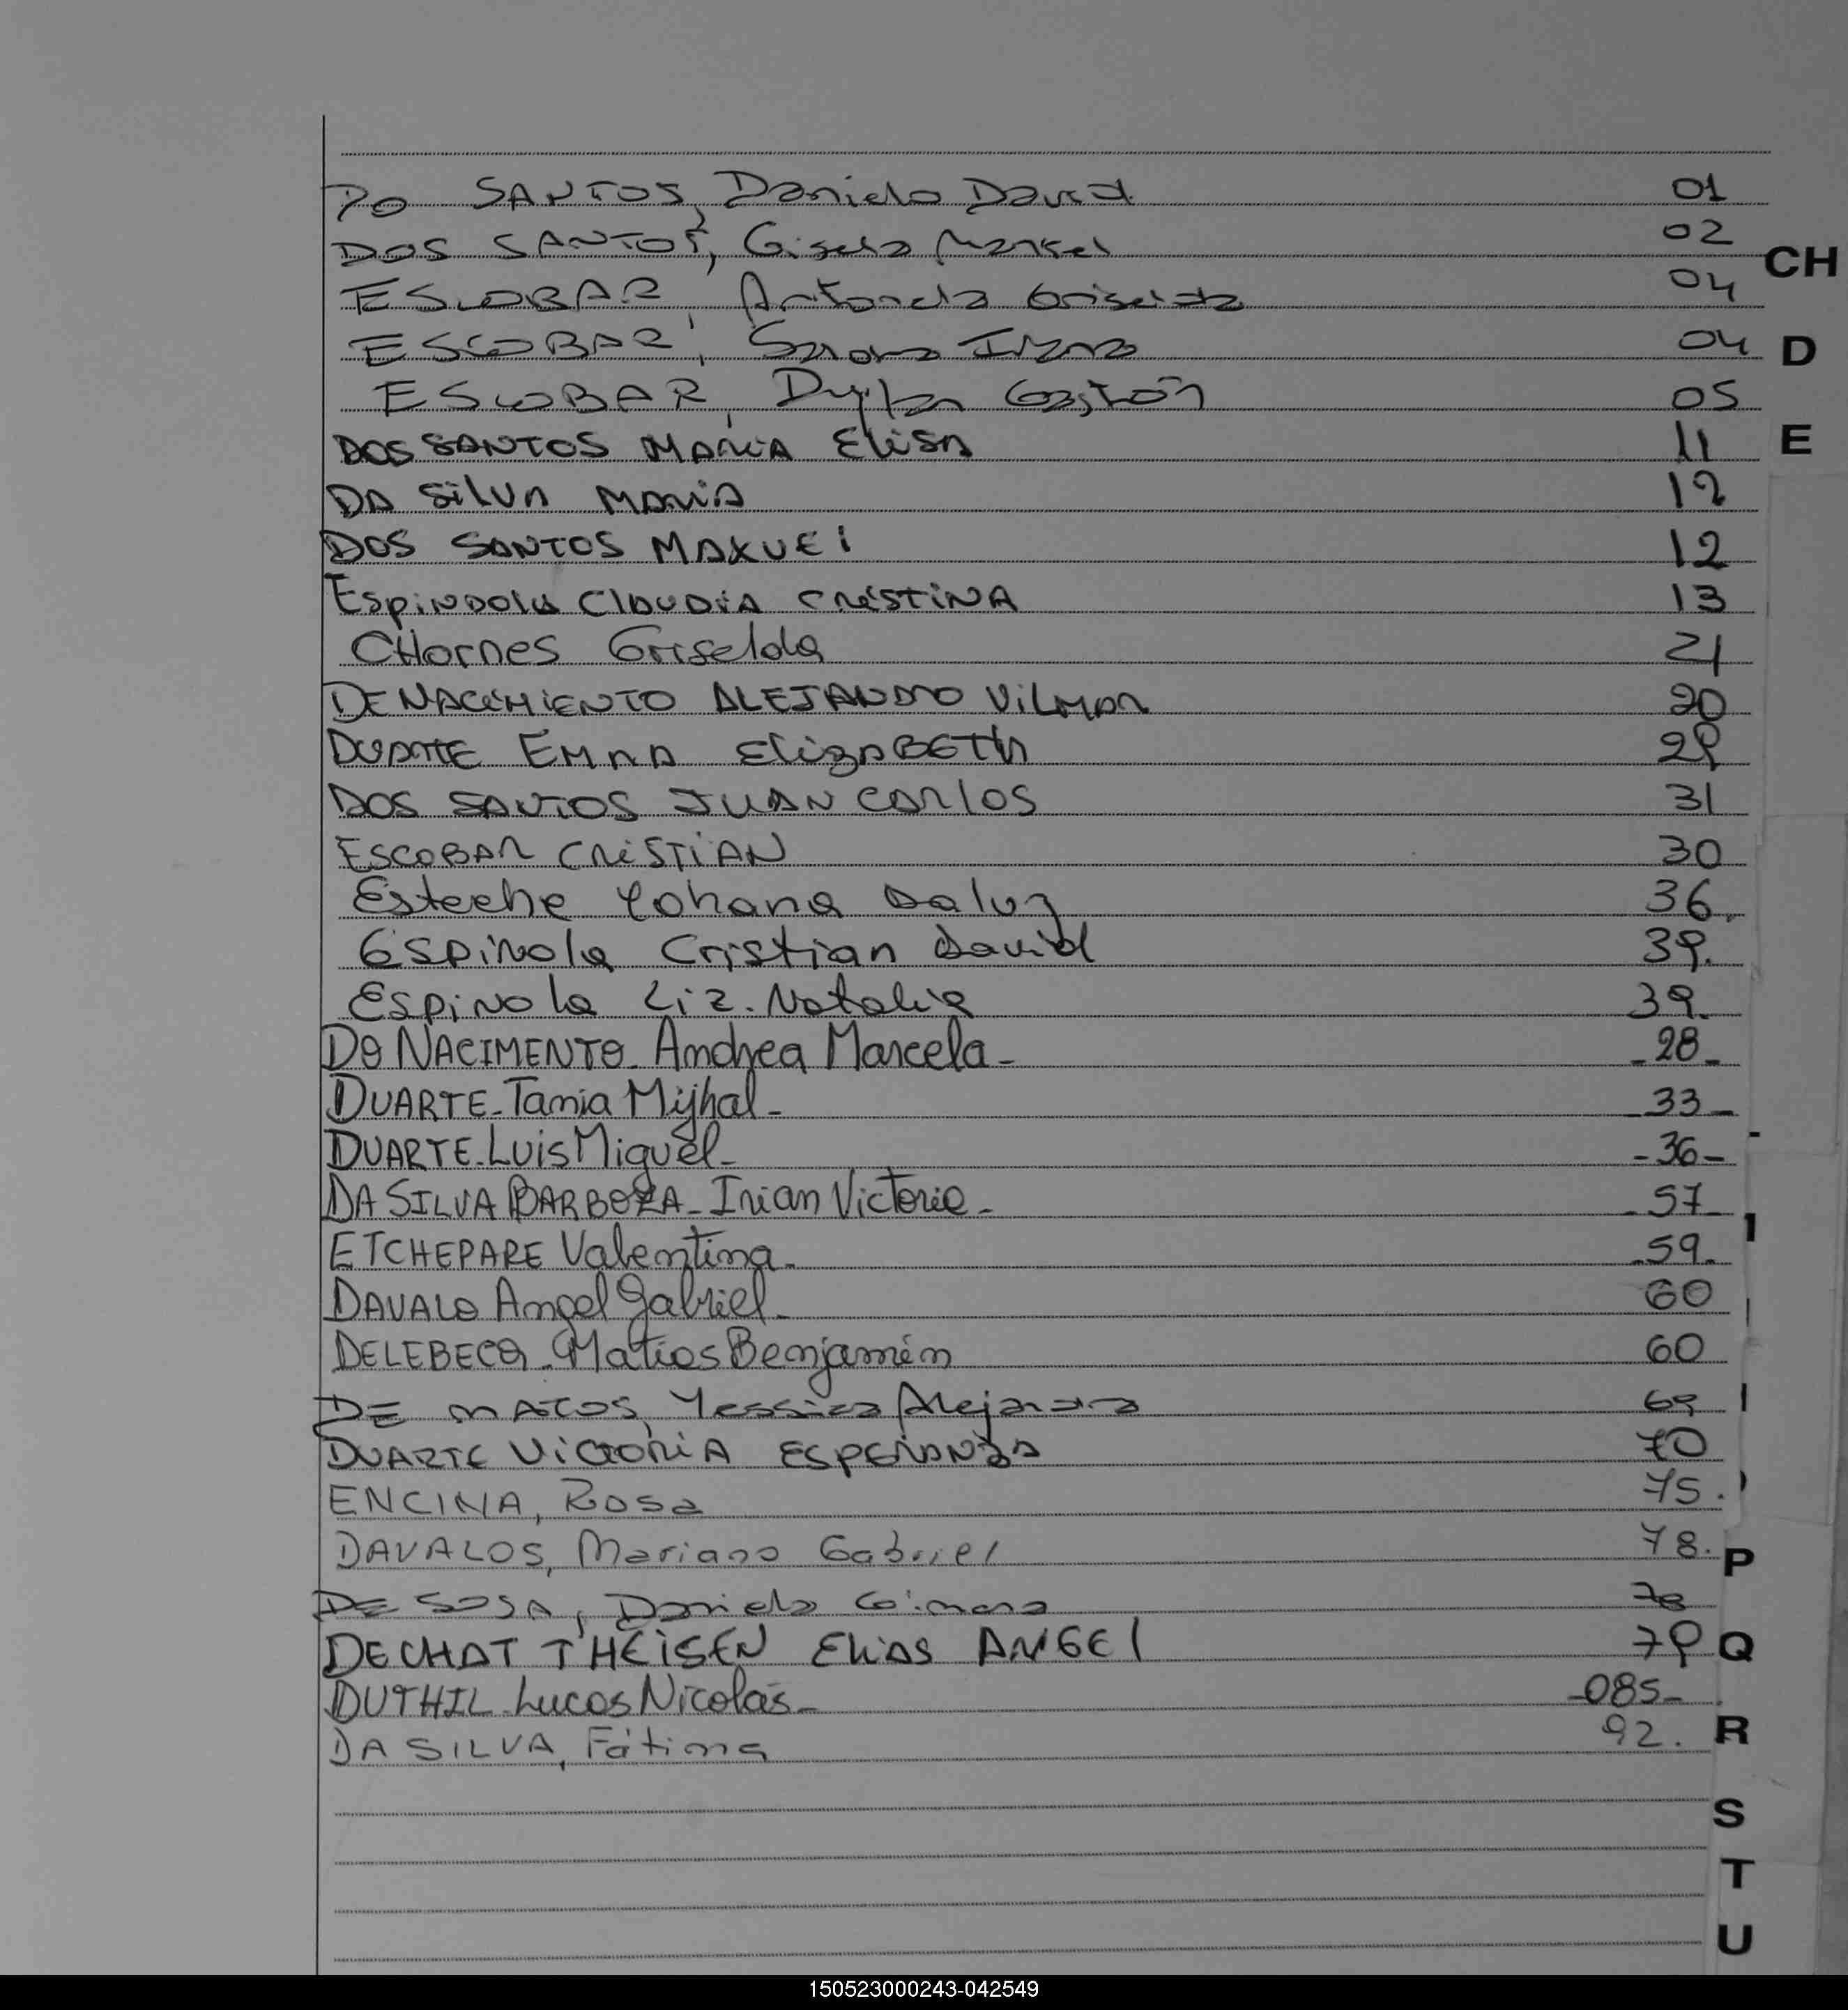 DO SANTOS, Daniela David 01
DOS SANTOS, Gisela Marisel 02
ESCOBAR, Antonela Griselda 04
ESCOBAR, Sarara Irana 04
ESCOBAR, Dylan Gastón 05
DOS SANTOS MARIA ELISA 11
DA SILVA MARIA 12
DOS SANTOS MAXUEl 12
Espindola CLAUDIA CRISTINA 13
CHornes Griselda 21
DE NACIMIENTO ALEJANDRO VILMAR 20
DUARTE EMMA ELIZABETH 29
DOS SANTOS JUAN CARLOS 31
ESCOBAR CRISTIAN 30
Esteche Yohana Daluz 36.
ESPINola Cristian David 39.
EspiNola Liz. Natalia 39.
DO NACIMENTO_ Andrea Marcela_ _28_
DUARTE_Tania Mijhal_ _33_
DUARTE_Luis Miguel_ _36_
DA SILVA BARBOZA_ Irian Victoria_ _57_
ETCHEPARE Valentina_ _59_
DAVALO Angel Gabriel_ 60
DELEBECQ_Matias Benjamín 60
DE MATOS, Yessica Alejandra 69
DUARTE VICTORIA ESPERANZA 70
ENCINA, Rosa 75.
DAVALOS, Mariano Gabriel 78.
DE SOSA, Daniela Gimena 78
DECHAT THEISEN ELIAS ANGEl 79
DUTHIL_Lucas Nicolás_ _085_
DA SILVA, Fátima 92.
CH
D
E
P
Q
R
S
T
U
150523000243-042549